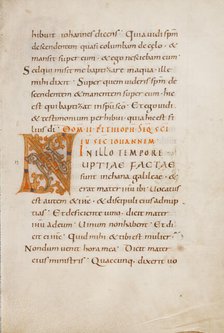 hibuit Iohannes dicens; Quia uidi spm
descendentem quasi columbam de celo, &
mansit super eum & ego nesciebam eum
Sed qui misit me baptizare in aqua. ille
mihi dixit; Super quem uideris spm de
scendentem & manentem super eum, hic
est qui baptizat in spu sco; Et ego uidi
& testimonium perhibui, quia hic est
filius di;
DOM II P THEOPH SEQ SCI
EV SEC IOHANNEM
IN ILLO TEMPORE
NUPTIAE FACTAE
sunt in chana galileae, & erat
mater ihu ibi; Vocatus
est autem & ihs & discipuli eius ad nup
tias; Et deficiente uino, dicit mater
ihu ad eum; Vinum non habent; Et dicit
ei ihs; Quid mihi & tibi est mulier;
Nondum uenit hora mea; Dicit mater
eius ministris; Quaecumq; dixerit uo